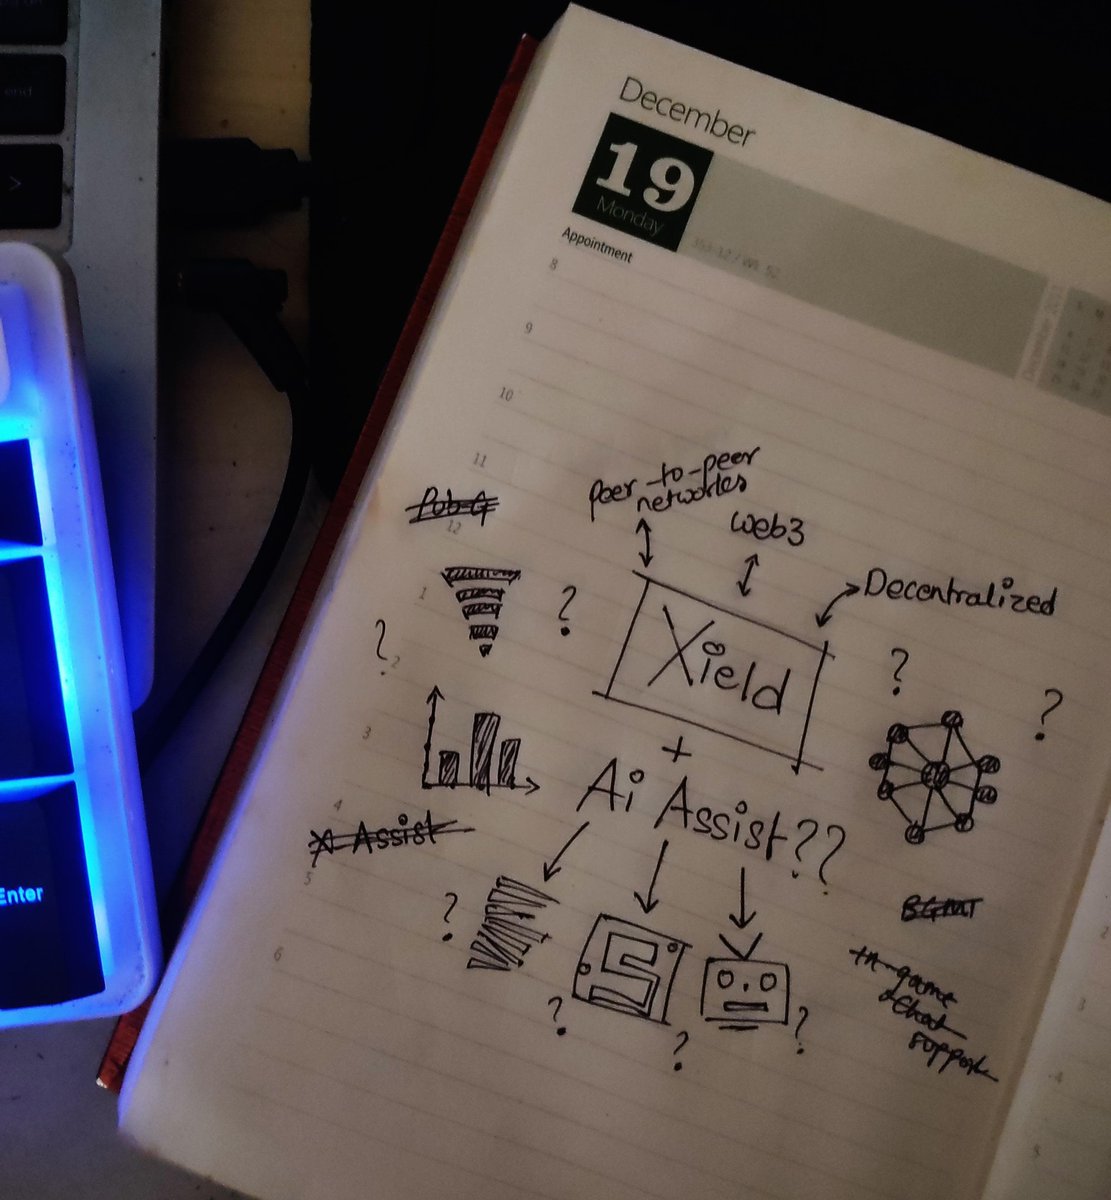 end
>
Enter
December
19
Monday
353-12 / Wk 52
Appointment
8
9
10
11
12
1
2
3
4
5
6
peer-to-peer
networks
web3
Decentralized
Pub-G
?
?
Xield
?
?
+
Ai Assist??
X Assist
?
S
?
?
?
BGMI
In-game
chat
support
3
4
5